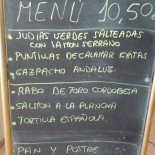 MENÚ 10,50
• JUDIAS VERDES SALTEADAS
CON JAMON SERRANO
• PUNTILLAS DE CALAMAR FRITAS
• GAZPACHO ANDALUZ
• RABO DE TORO CORDOBESA
• SALMON A LA PLANCHA
• TORTILLA ESPAÑOLA
PAN Y POSTRE